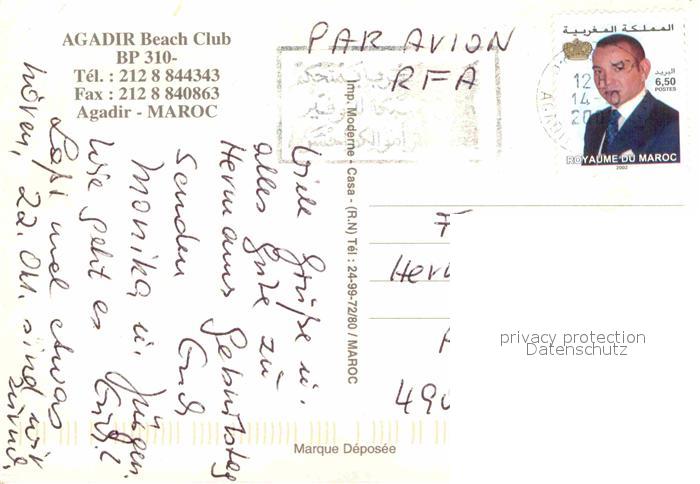 AGADIR Beach Club
BP 310-
Tél. : 212 8 844343
Fax : 212 8 840863
Agadir - MAROC
PAR AVION
RFA
المملكة المغربية
البريد
6,50
POSTES
ROYAUME DU MAROC
2002
12
14-
20
AGADIR
Viele Grüße u.
alles Gute zu
Hermanns Geburtstag
senden Euch
Monika u. Jürgen.
Wie geht es Euch?
Laßt mal etwas
hören, 22. Okt. sind wir
zurück.
Imp. Moderne - Casa - (R.N) Tél : 24-99-72/80 / MAROC
Her
490
privacy protection
Datenschutz
Marque Déposée